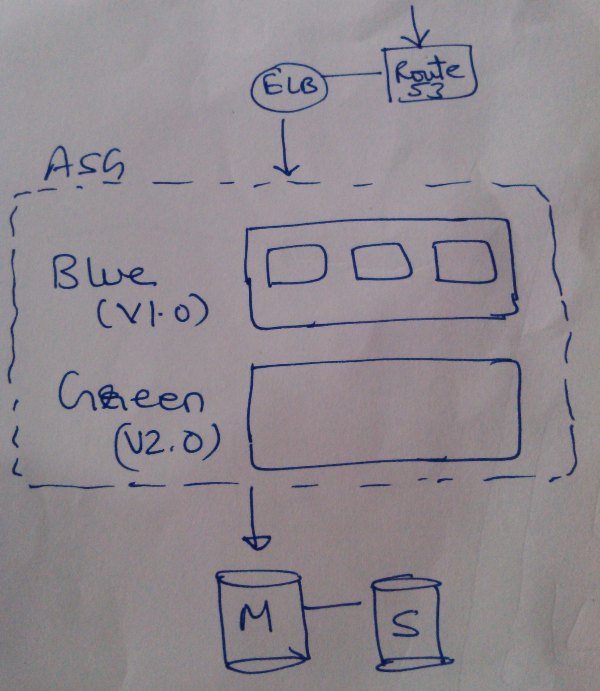 Route
53
ELB
ASG
Blue
(V1.0)
Green
(V2.0)
M
S